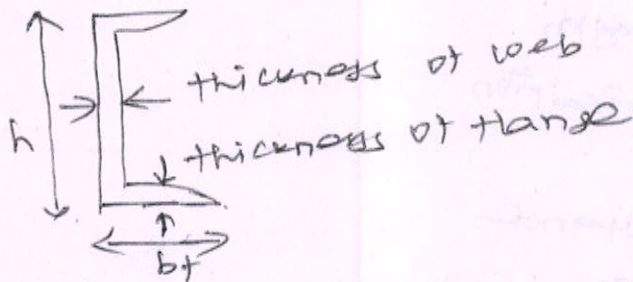 thickness of web
h
thickness of flange
bf